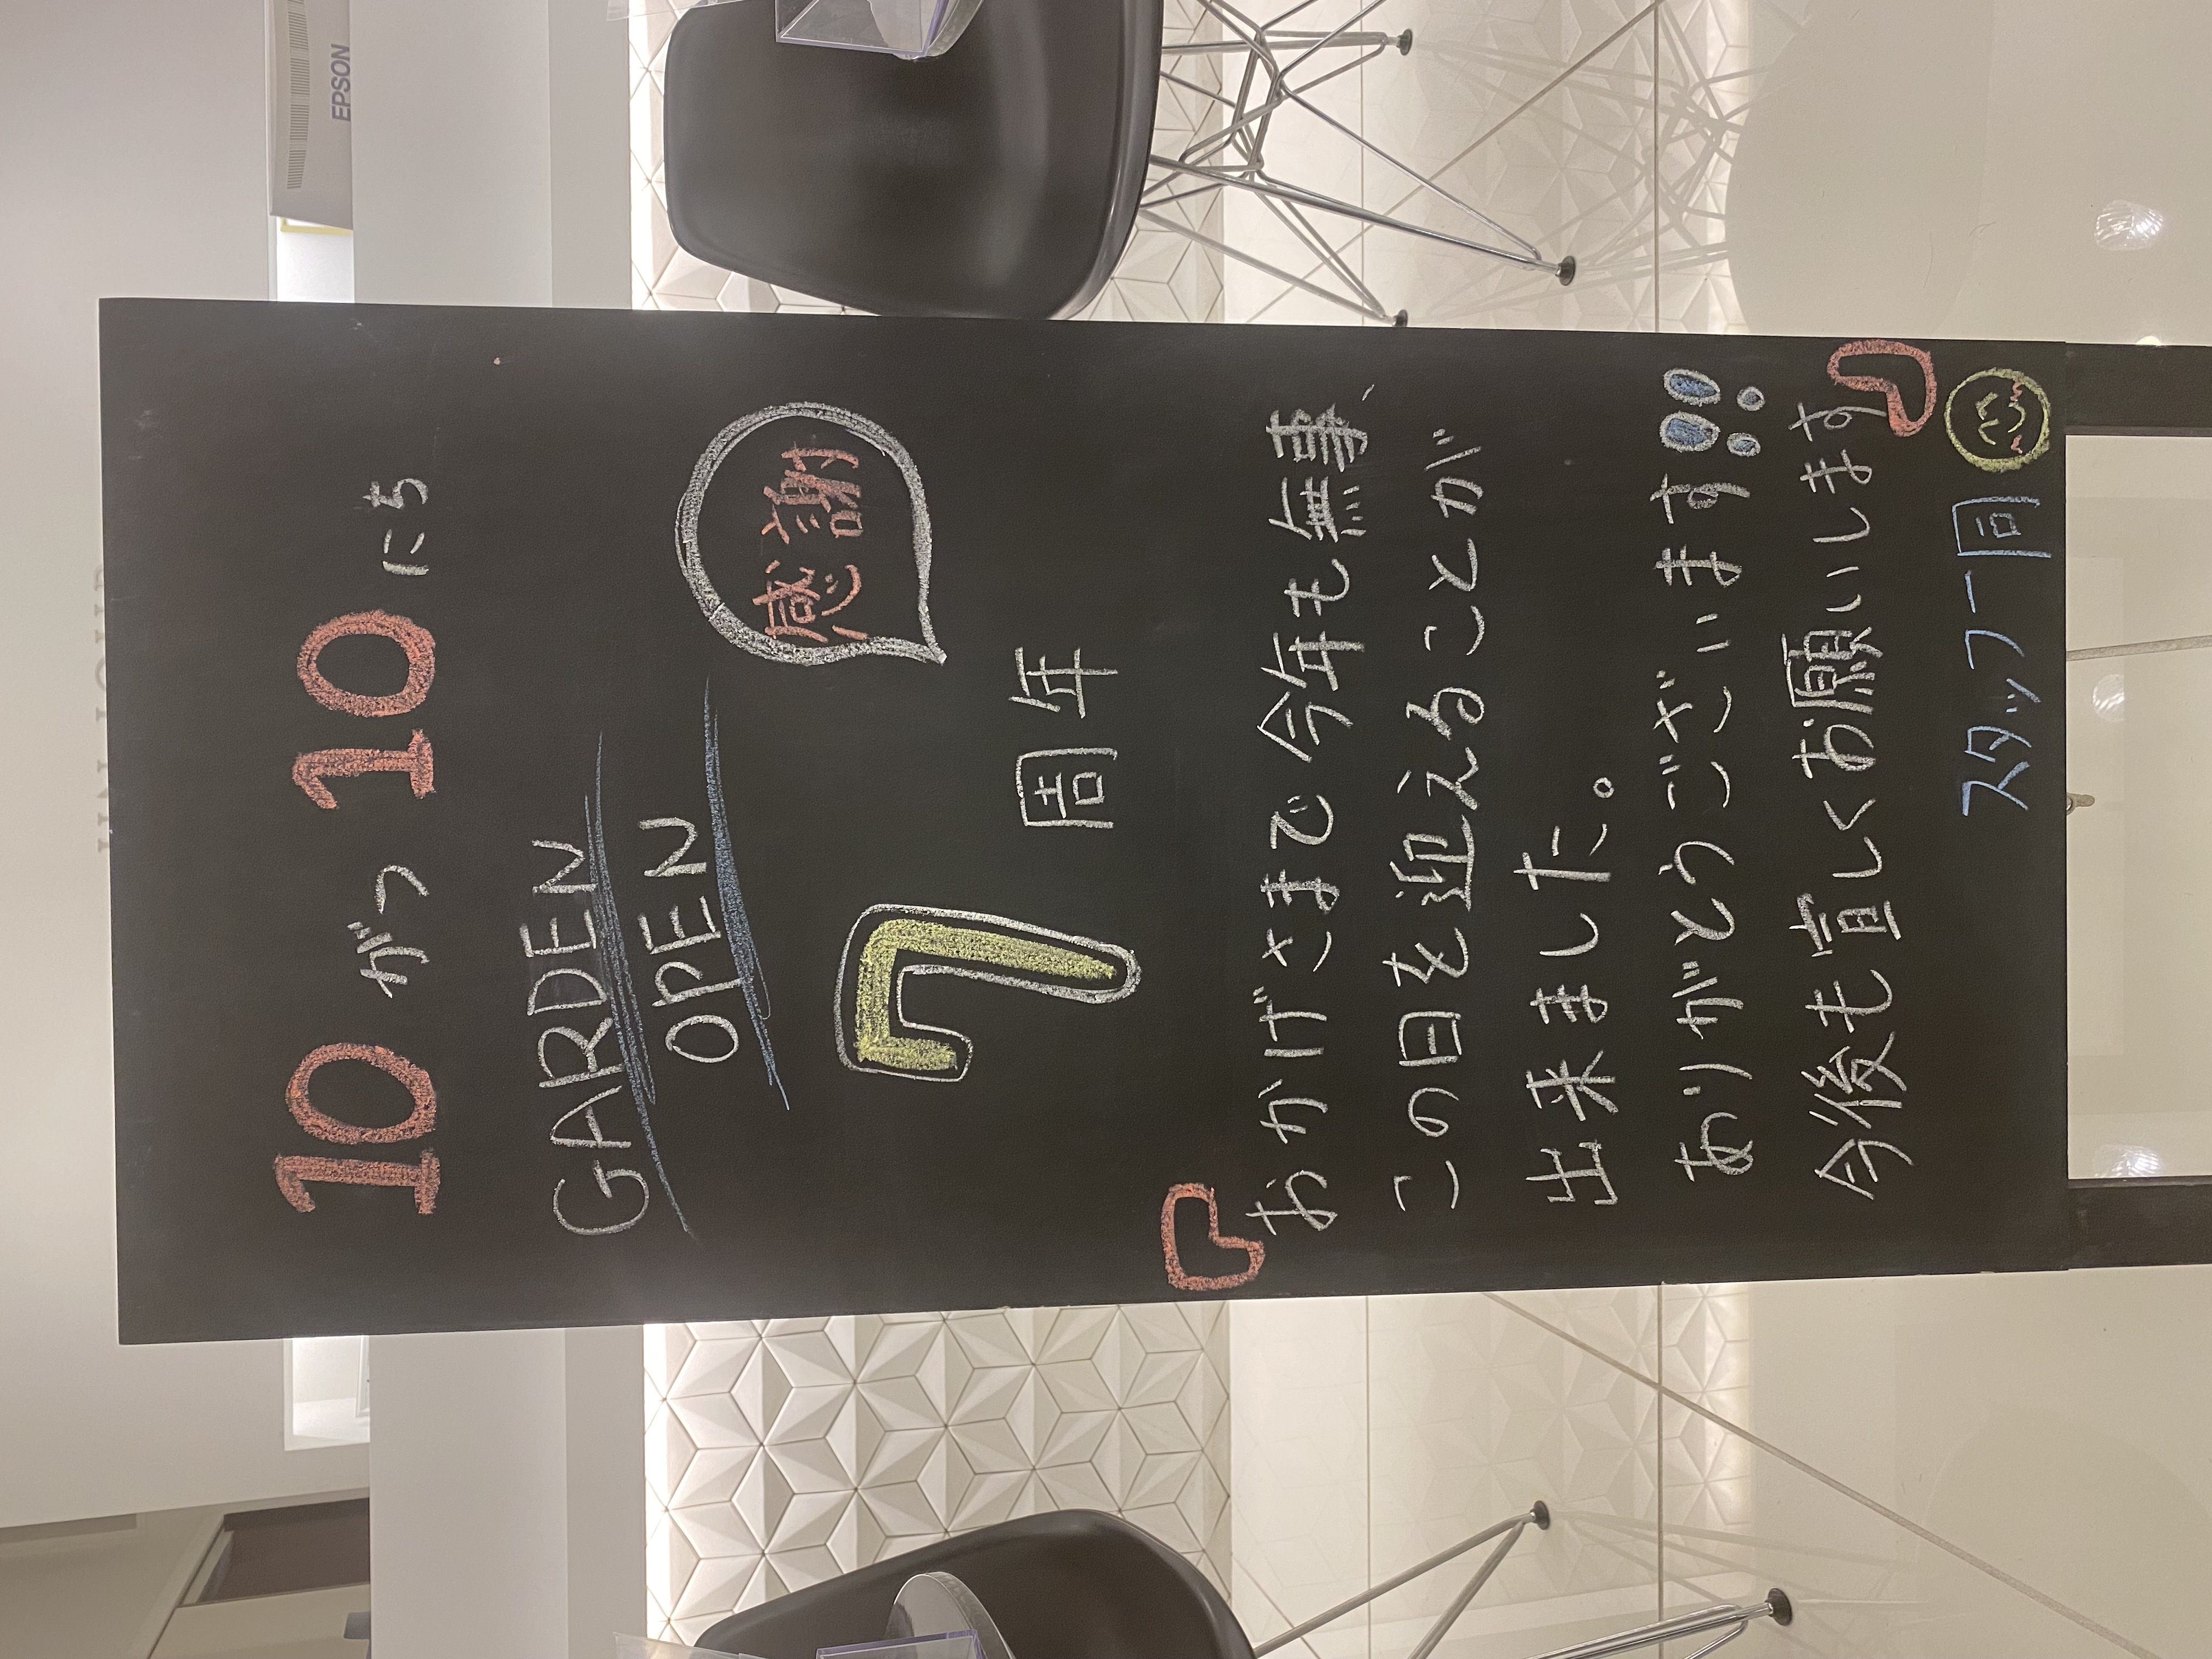 10がつ10にち
GARDEN
OPEN
感謝
7周年
おかげさまで今年も無事、
この日を迎えることが
出来ました。
ありがとうございます!!
今後も宜しくお願いします
スタッフ一同
EPSON